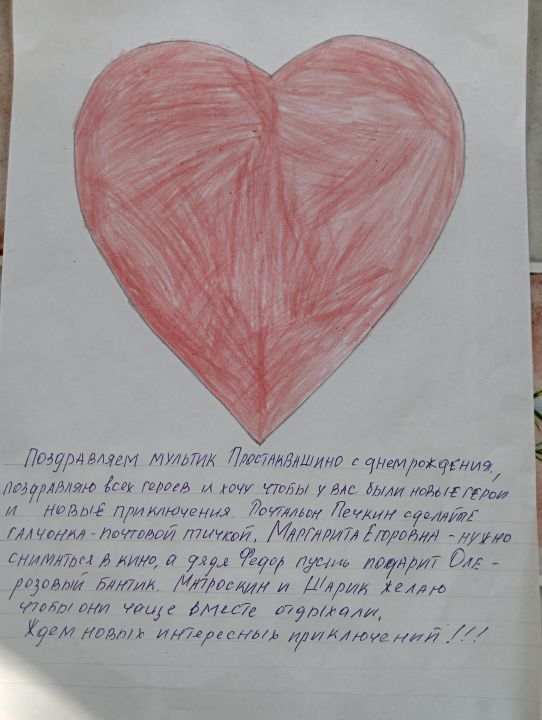 Поздравляем мультик Простаквашино с днем рождения,
поздравляю всех героев и хочу чтобы у вас были новые герои
и новые приключения. Почтальон Печкин сделайте
галчонка - почтовой птичкой, Маргарита Егоровна - нужно
сниматься в кино, а дядя Федор пусть подарит Оле -
розовый бантик. Матроскин и Шарик желаю
чтобы они чаще вместе отдыхали.
Ждем новых интересных приключений!!!